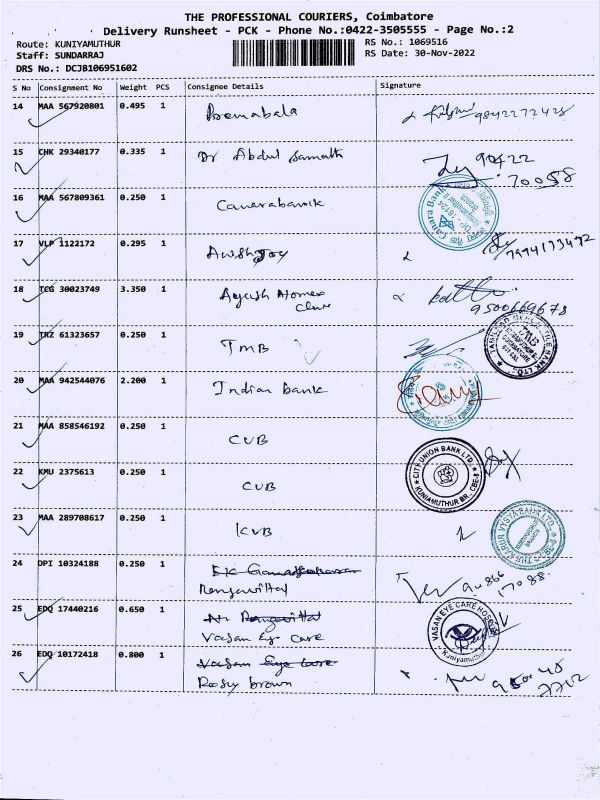 THE PROFESSIONAL COURIERS, Coimbatore
Delivery Runsheet - PCK - Phone No.:0422-3505555 - Page No.:2
Route: KUNIYAMUTHUR
RS No.: 1069516
Staff: SUNDARRAJ
RS Date: 30-Nov-2022
DRS No.: DCJB106951602
S No Consignment No Weight PCS Consignee Details Signature
14 MAA 567920801 0.495 1 Premabala 9842272428
15 CHK 29340177 0.335 1 Dr Abdul Samath 90422
70058
16 MAA 567809361 0.250 1 Canarabank Canara Bank
17 VLP 1122172 0.295 1 7994193492
18 TCG 30023749 3.350 1 Ayush Homeo
9500669678
19 TRZ 61323657 0.250 1 TMB TMB
20 MAA 942544076 2.200 1 Indian Bank
21 MAA 858546192 0.250 1 CUB CITY UNION BANK LTD.
KUNIAMUTHUR BR., CBE-8
22 KMU 2375613 0.250 1 CUB
23 MAA 289708617 0.250 1 KVB THE KARUR VYSYA BANK LTD.
24 DPI 10324188 0.250 1
Rengavittal
25 EDQ 17440216 0.650 1 VASAN EYE CARE HOSPITAL
Vasan Eye care Kuniyamuthur
26 EDQ 10172418 0.800 1 Vasan Eye Care
Rosy brown